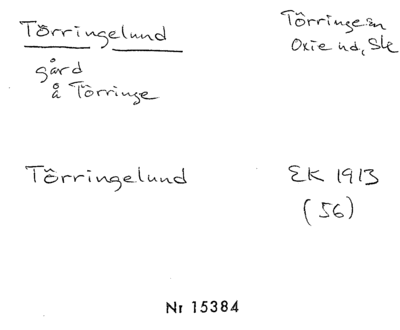 Törringelund
gård
å Törringe
Törringe sn
Oxie hd, Sk
Törringelund
EK 1913
(56)
Nr 15384